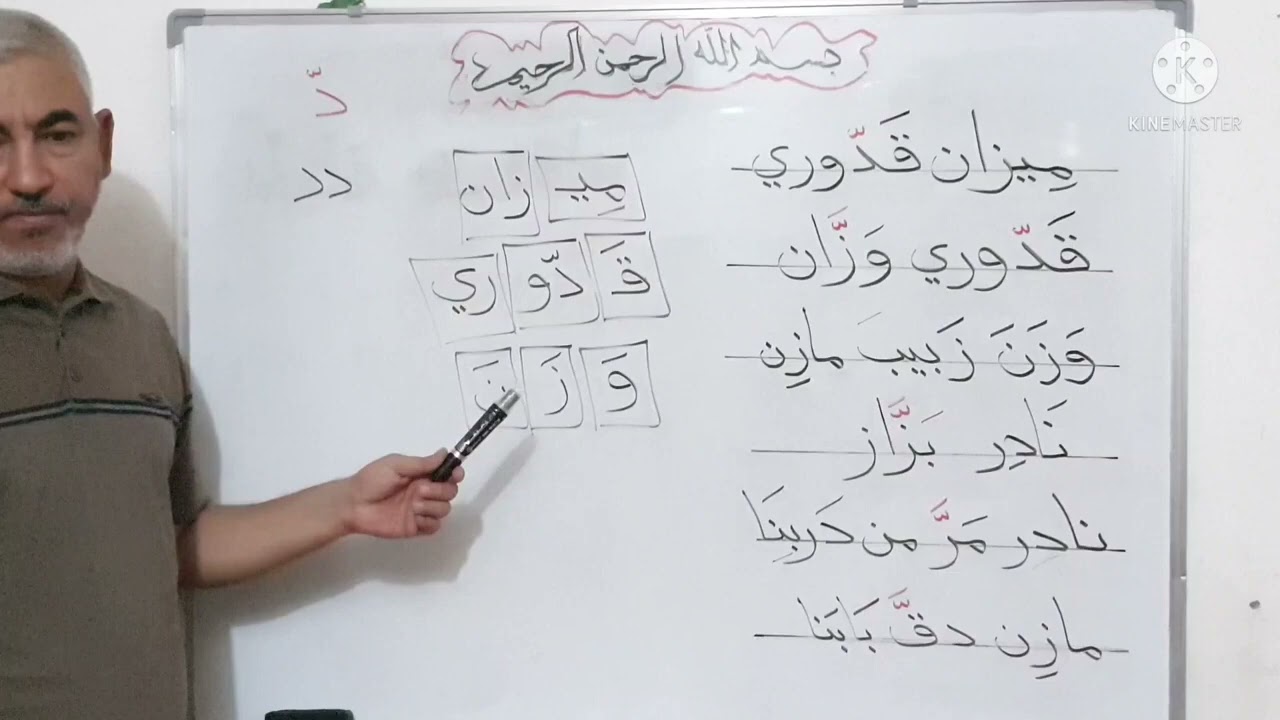 بسم الله الرحمن الرحيم
مِيزان قَدّوري
قَدّوري وَزّان
وَزَنَ زَبيبَ مازِن
نَادِر بَزَّاز
نادر مَرَّ من دَربِنَا
مازِن دقَّ بَابَنا
مِيـ زان
قَ دّو ري
وَ زَ نَ
دّ
دد
KINEMASTER